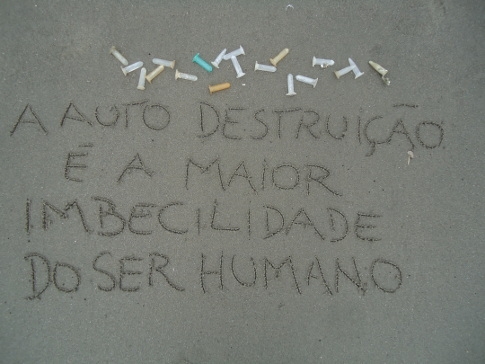 A AUTO DESTRUIÇÃO
É A MAIOR
IMBECILIDADE
DO SER HUMANO